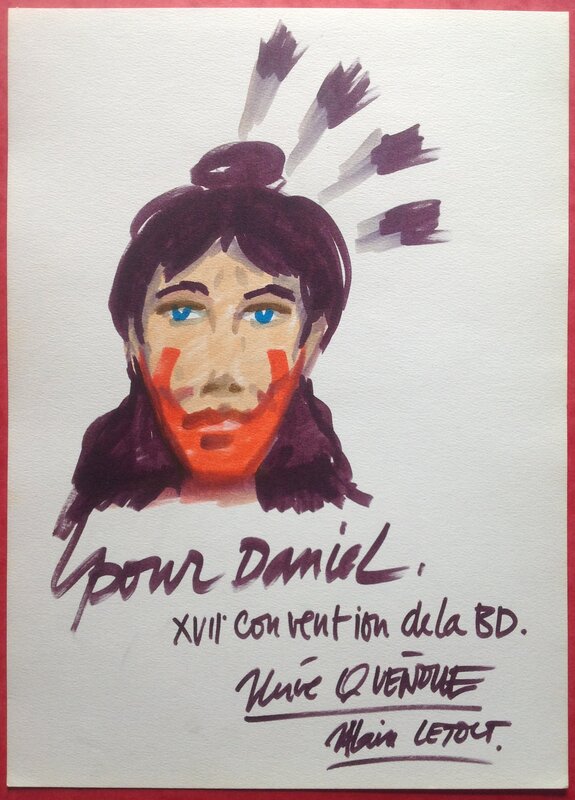 pour Daniel.
XVII° convention de la BD.
Hervé QUENOLLE
Alain LETORT.